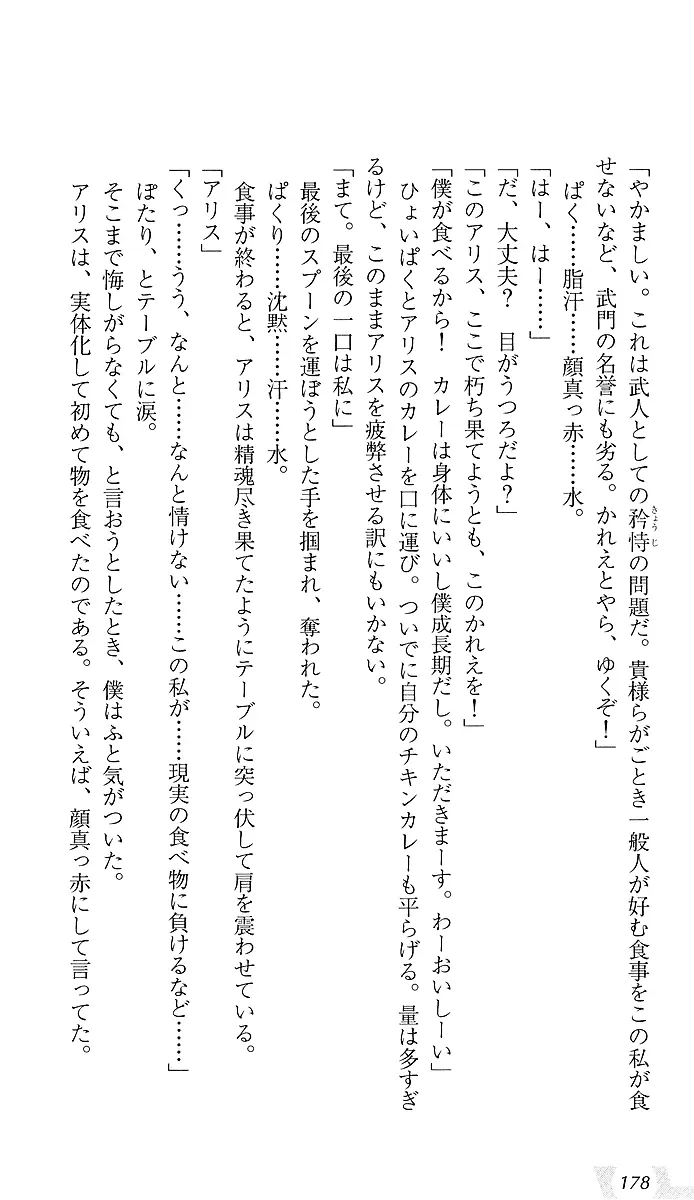 「やかましい。これは武人としての矜恃の問題だ。貴様らがごとき一般人が好む食事をこの私が食
きょうじ
せないなど、武門の名誉にも劣る。かれえとやら、ゆくぞ！」
ぱく……脂汗……顔真っ赤……水。
「はー、はー……」
「だ、大丈夫？　目がうつろだよ？」
「このアリス、ここで朽ち果てようとも、このかれえを！」
「僕が食べるから！　カレーは身体にいいし僕成長期だし。いただきまーす。わーおいしーい」
ひょいぱくとアリスのカレーを口に運び。ついでに自分のチキンカレーも平らげる。量は多すぎ
るけど、このままアリスを疲弊させる訳にもいかない。
「まて。最後の一口は私に」
最後のスプーンを運ぼうとした手を掴まれ、奪われた。
ぱくり……沈黙……汗……水。
食事が終わると、アリスは精魂尽き果てたようにテーブルに突っ伏して肩を震わせている。
「アリス」
「くっ……うう、なんと……なんと情けない……この私が……現実の食べ物に負けるなど……」
ぽたり、とテーブルに涙。
そこまで悔しがらなくても、と言おうとしたとき、僕はふと気がついた。
アリスは、実体化して初めて物を食べたのである。そういえば、顔真っ赤にして言ってた。
178